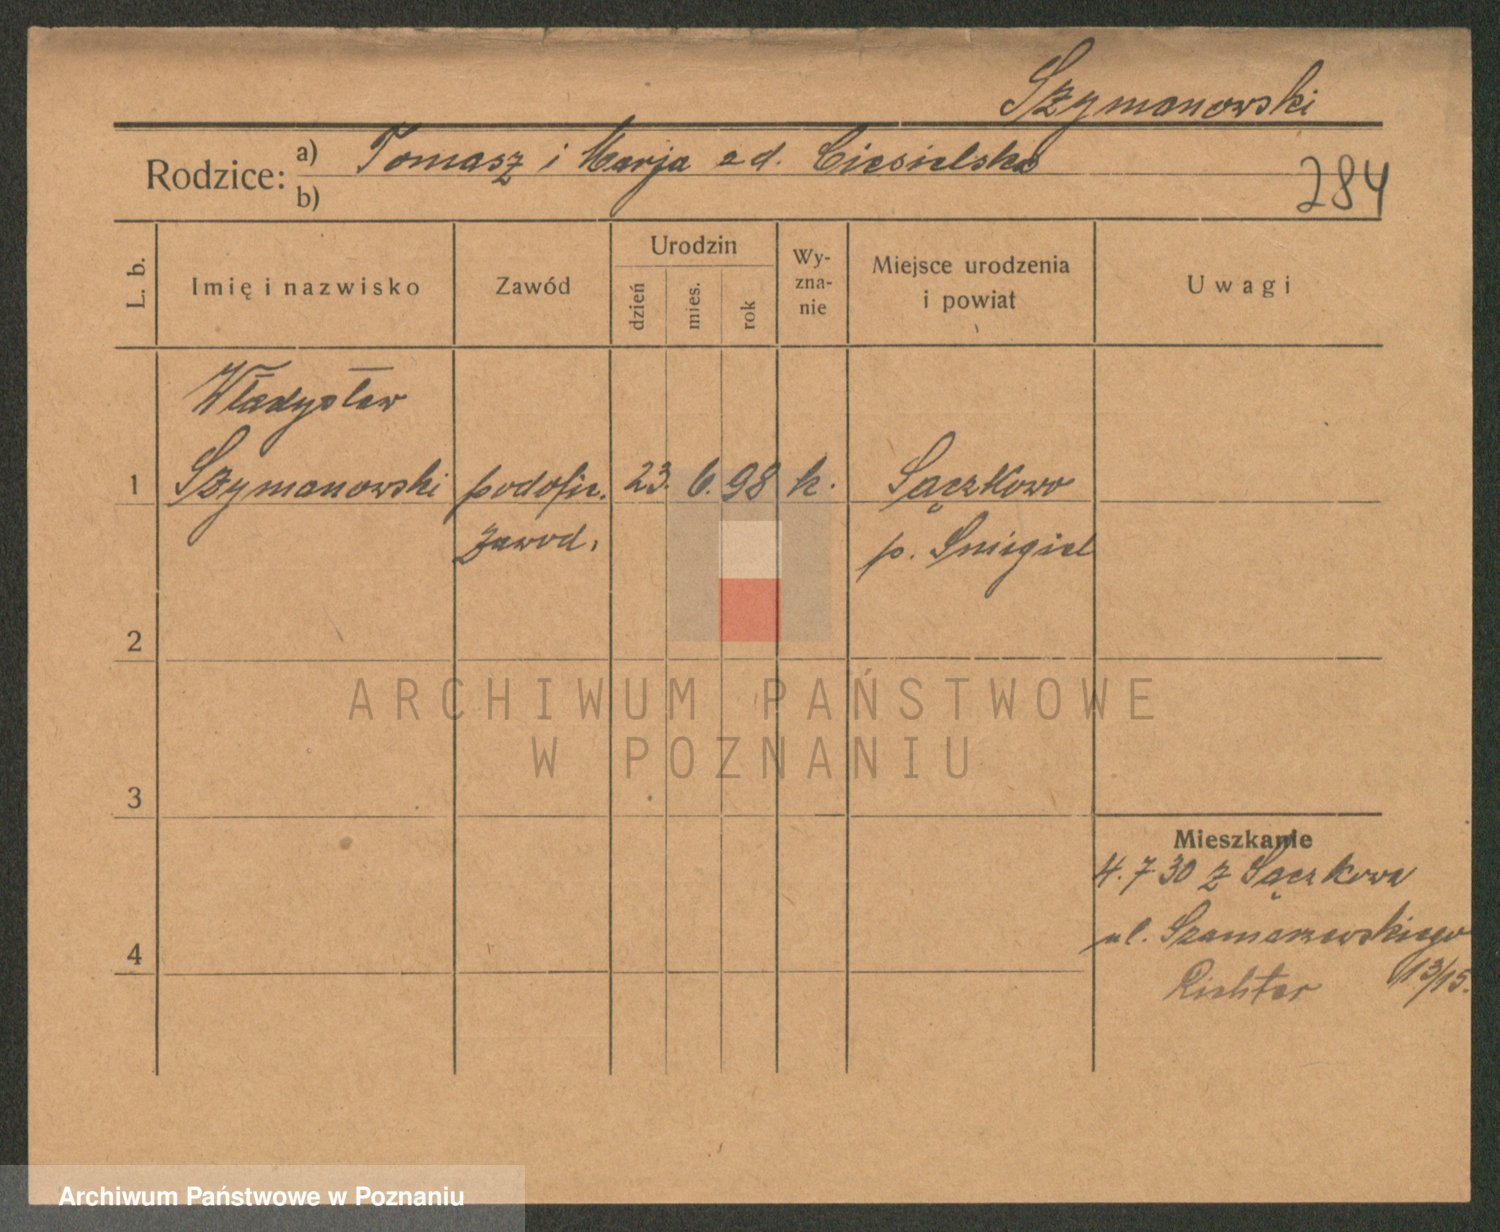 Szymanowski
Rodzice: a) Tomasz i Marja zd. Ciesielska
b)
284
L. b.
Imię i nazwisko
Zawód
Urodzin
dzień
mies.
rok
Wy-
zna-
nie
Miejsce urodzenia
i powiat
Uwagi
Władysław
1 Szymanowski podofic. 23. 6. 98 k. Sączkowo
zawod. p. Śmigiel
2
ARCHIWUM PAŃSTWOWE
W POZNANIU
3
Mieszkanie
4. 7 30 z Sączkowa
ul. Szamarzewskiego
4
13/15.
Richter
Archiwum Państwowe w Poznaniu